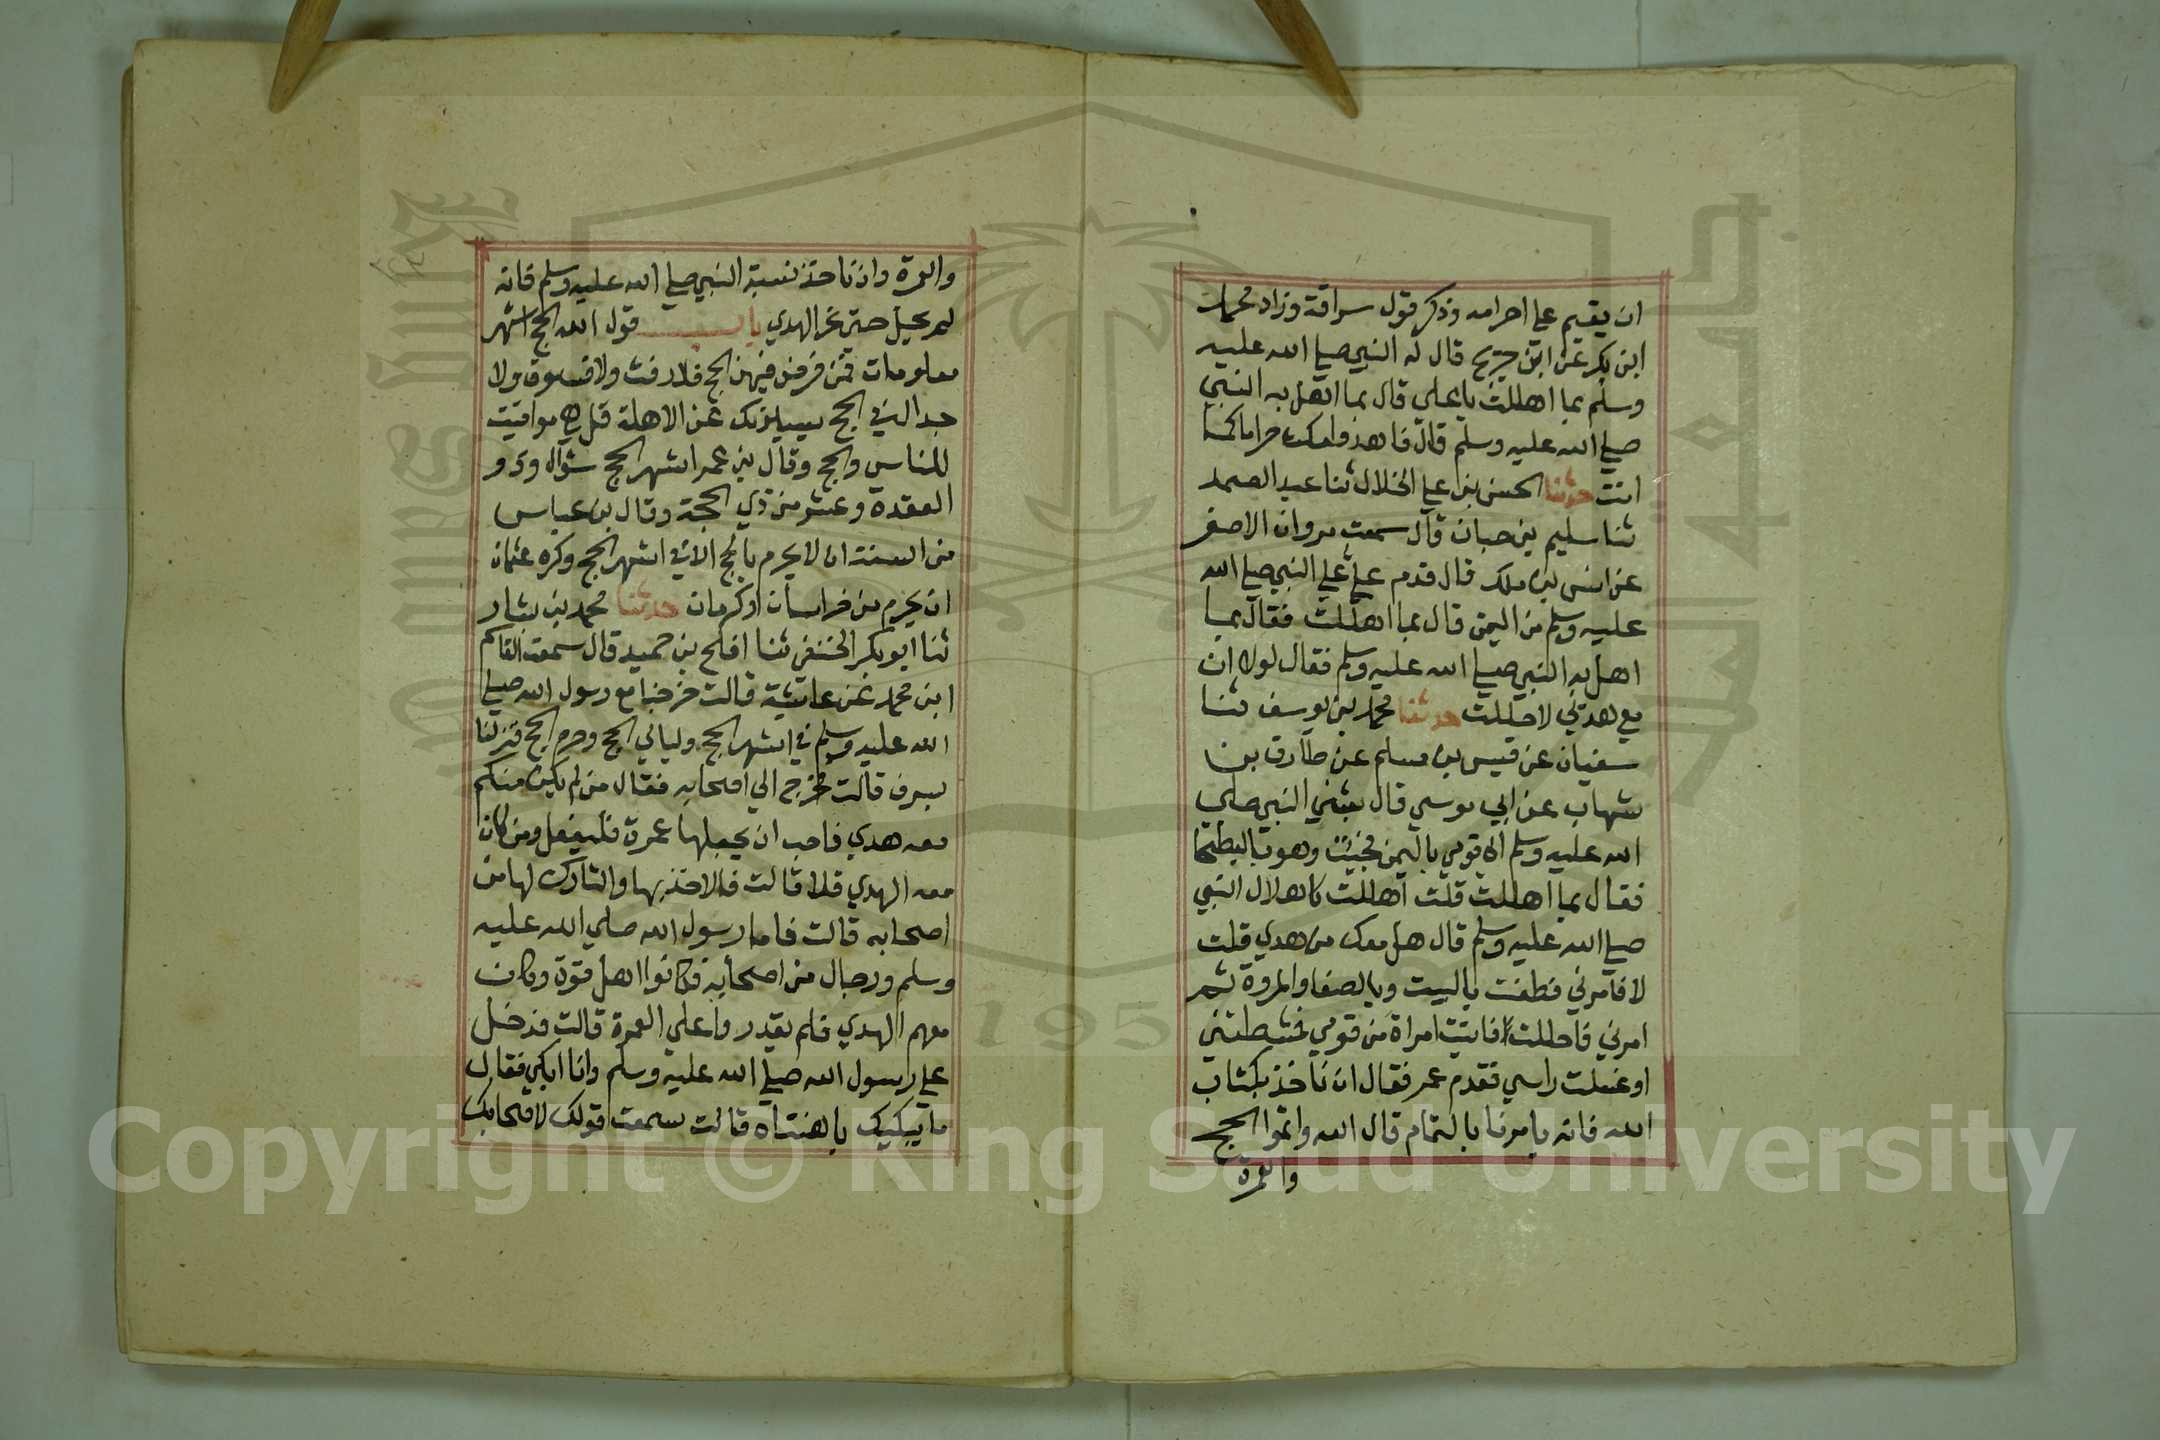 ان يقيم علي احرامه وذكر قول سراقة وزاد محمد
ابن بكر عن ابن جريج قال له النبي صلي الله عليه
وسلم بما اهللت يا علي قال بما اهل به النبي
صلي الله عليه وسلم قال فاهد وامكث حراما كما
انت حدثنا الحسن بن علي الخلال ثنا عبد الصمد
ثنا سليم بن حبان قال سمعت مروان الاصفر
عن انس بن ملك قال قدم علي علي النبي صلي الله
عليه وسلم من اليمن قال بما اهللت فقال بما
اهل به النبي صلي الله عليه وسلم فقال لولا ان
مع هدي لاحللت حدثنا محمد بن يوسف ثنا
سفيان عن قيس بن مسلم عن طارق بن
شهاب عن ابي موسي قال بعثني النبي صلي
الله عليه وسلم الي قومي باليمن فجئت وهو بالبطحا
فقال بما اهللت قلت اهللت كاهلال النبي
صلي الله عليه وسلم قال هل معك من هدي قلت
لا فامرني فطفت بالبيت وبالصفا والمروة ثم
امرني فاحللت فاتيت امراة من قومي فمشطتني
او غسلت راسي فقدم عمر فقال ان ناخذ بكتاب
الله فانه يامرنا بالتمام قال الله واتموا الحج
والعمرة
والعمرة وان ناخذ بسنة النبي صلي الله عليه وسلم فانه
لم يحل حتي نحر الهدي باب قول الله الحج اشهر
معلومات فمن فرض فيهن الحج فلا رفث ولا فسوق ولا
جدال في الحج يسيلونك عن الاهلة قل هي مواقيت
للناس والحج وقال بن عمر اشهر الحج شوال وذو
العقدة وعشر من ذي الحجة وقال بن عباس
من السنة ان لا يحرم بالحج الا في اشهر الحج وكره عثمان
ان يحرم من خراسان او كرمان حدثنا محمد بن بشار
ثنا ابو بكر الحنفي ثنا افلح بن حميد قال سمعت القاسم
ابن محمد عن عائشة قالت خرجنا مع رسول الله صلي
الله عليه وسلم في اشهر الحج وليالي الحج وحرم الحج فنزلنا
بسرف قالت فخرج الي اصحابه فقال من لم يكن منكم
معه هدي فاحب ان يجعلها عمرة فليفعل ومن كان
معه الهدي فلا قالت فالاخذ بها والتارك لها من
اصحابه قالت فاما رسول الله صلي الله عليه
وسلم ورجال من اصحابه فكانوا اهل قوة وكان
معهم الهدي فلم يقدروا علي العمرة قالت فدخل
علي رسول الله صلي الله عليه وسلم وانا ابكي فقال
ما يبكيك يا هنتاه قالت سمعت قولك لاصحابك
King Saud University
1957
Copyright © King Saud University